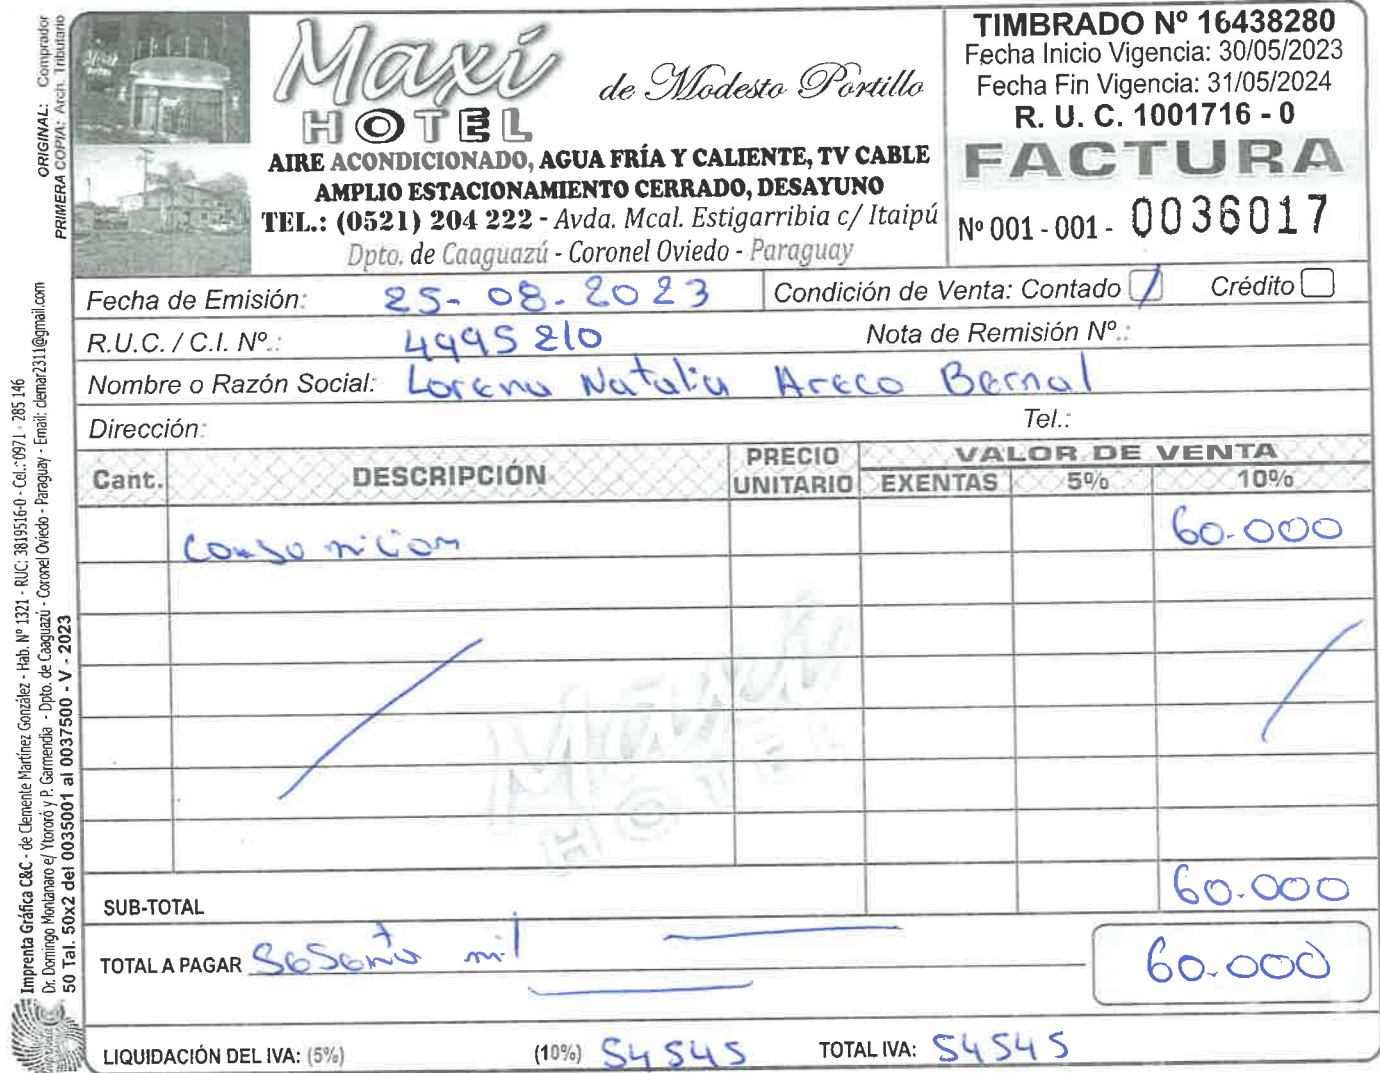 ORIGINAL: Comprador
PRIMERA COPIA: Arch. Tributario
Maxi
HOTEL
de Modesto Portillo
AIRE ACONDICIONADO, AGUA FRÍA Y CALIENTE, TV CABLE
AMPLIO ESTACIONAMIENTO CERRADO, DESAYUNO
TEL.: (0521) 204 222 - Avda. Mcal. Estigarribia c/ Itaipú
Dpto. de Caaguazú - Coronel Oviedo - Paraguay
TIMBRADO Nº 16438280
Fecha Inicio Vigencia: 30/05/2023
Fecha Fin Vigencia: 31/05/2024
R. U. C. 1001716 - 0
FACTURA
Nº 001 - 001 - 0036017
Fecha de Emisión: 25-08-2023 Condición de Venta: Contado Crédito
R.U.C. / C.I. Nº.: 4995210 Nota de Remisión Nº.:
Nombre o Razón Social: Lorena Natalia Areco Bernal
Dirección: Tel.:
Cant. DESCRIPCIÓN PRECIO UNITARIO VALOR DE VENTA
EXENTAS 5% 10%
Consumicion 60.000
Maxi
HOTEL
SUB-TOTAL 60.000
TOTAL A PAGAR Sesenta mil 60.000
LIQUIDACIÓN DEL IVA: (5%) (10%) 54545 TOTAL IVA: 54545
Imprenta Gráfica C&C - de Clemente Martínez González - Hab. Nº 1321 - RUC: 3819516-0 - Cel.: 0971 - 285 146
Dr. Domingo Montanaro e/ Ytororó y P. Garmendia - Dpto. de Caaguazú - Coronel Oviedo - Paraguay - Email: clemar2311@gmail.com
50 Tal. 50x2 del 0035001 al 0037500 - V - 2023